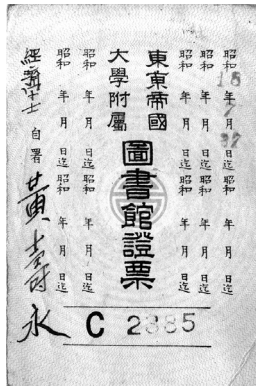 昭和 年 月 日迄 昭和 年 月 日迄
昭和 年 月 日迄 昭和 年 月 日迄
昭和 年 月 日迄 昭和 年 月 日迄
東京帝國
大學附屬
圖書館證票
昭和 年 月 日迄 昭和 年 月 日迄
昭和 年 月 日迄 昭和 年 月 日迄
自署 黃壽永
C 2385